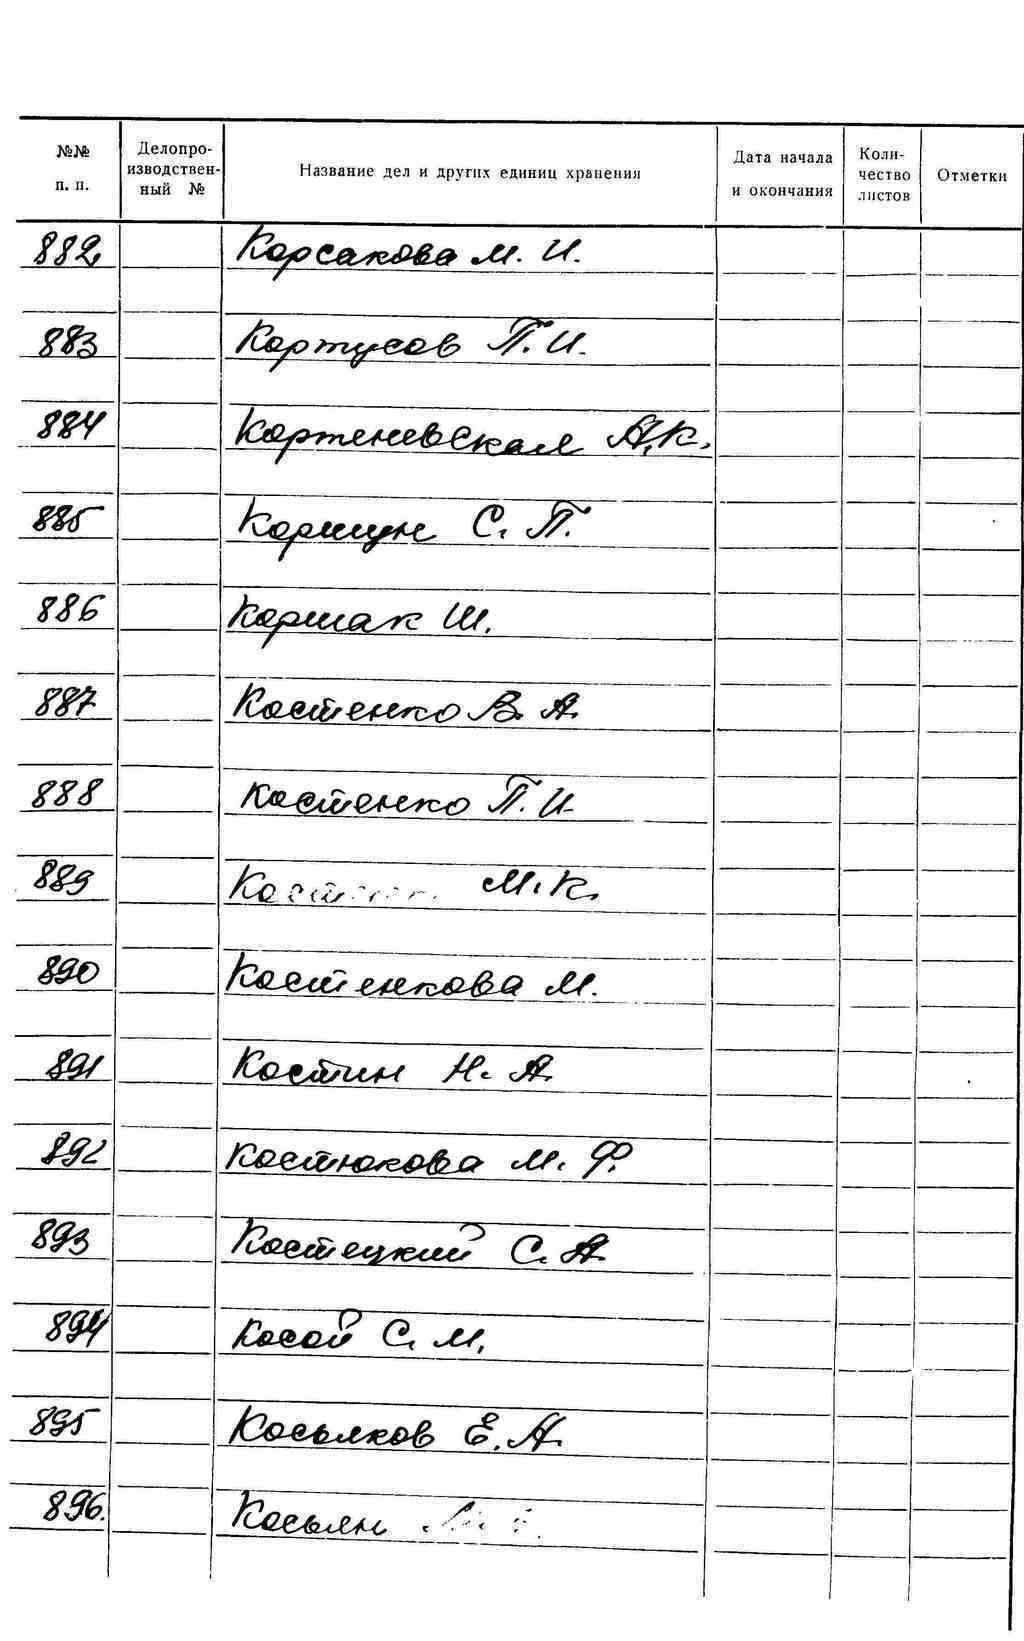 №№ п. п. Делопроизводственный № Название дел и других единиц хранения Дата начала и окончания Количество листов Отметки
882 Корсакова М. И.
883 Кортусов П. И.
884 Корженевская А. К.
885 Коршун С. П.
886 Коршак Ш.
887 Костенко В. А.
888 Костенко П. И.
889 М. К.
890 Костенкова М.
891 Костин Н. А.
892 Костюкова М. Ф.
893 Костецкий С. А.
894 Косой С. М.
895 Косьяков Е. А.
896. Косьян